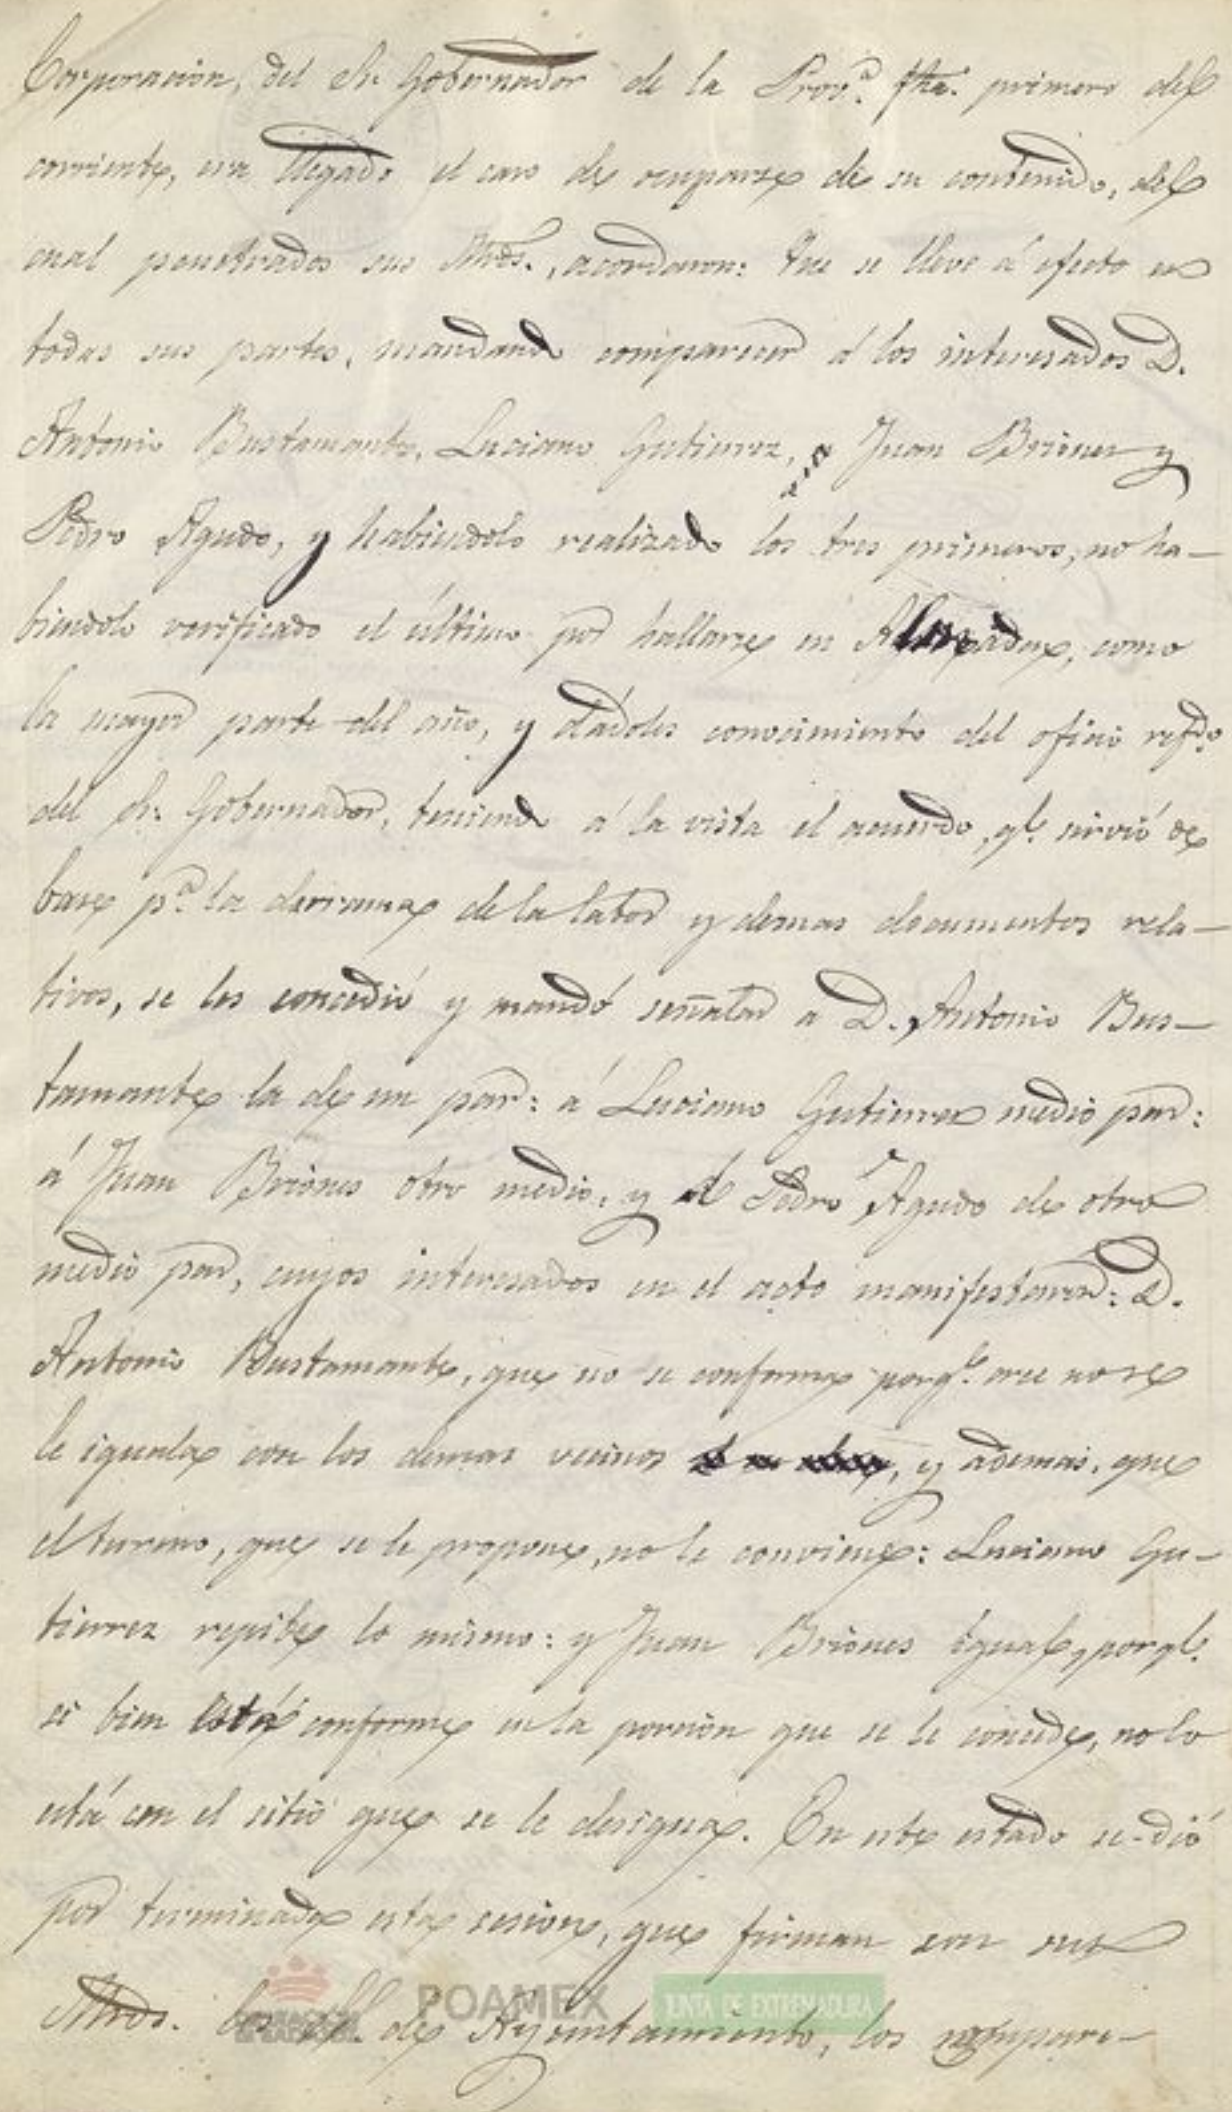 Corporacion, del Sr. Gobernador de la Prov.ª fha. primero del
corriente, era llegado el caso de ocuparse de su contenido, del
cual penetrados sus Mrds., acordaron: Que se lleve á efecto en
todas sus partes, mandando comparecer á los interesados D.
Antonio Bustamante, Luciano Gutierrez, Juan Briones y
Pedro Agudo, y habiendolo realizado los tres primeros, no ha-
biendolo verificado el último por hallarse en como
la mayor parte del año, y dádoles conocimiento del oficio refdo.
del Sr. Gobernador, teniendo á la vista el acuerdo, qe. sirvió de
base pª. la derrama de la labor y demas documentos rela-
tivos, se les concedió y mandó señalar a D. Antonio Bus-
tamante la de un par: á Luciano Gutierrez medio par:
á Juan Briones otro medio, y á Pedro Agudo de otro
medio par, cuyos interesados en el acto manifestaron: D.
Antonio Bustamante, que no se conforma porqe. cree no se
le iguala con los demas vecinos, y ademas, que
el turno, que se le propone, no le conviene: Luciano Gu-
tierrez repite lo mismo: y Juan Briones igual, porqe.
si bien está conforme en la porcion que se le concede, no lo
está con el sitio que se le designa. En este estado se dió
por terminada esta sesion, que firman con sus
Mrds. los SS. de Ayuntamiento, los compare-
POAMEX
JUNTA DE EXTREMADURA